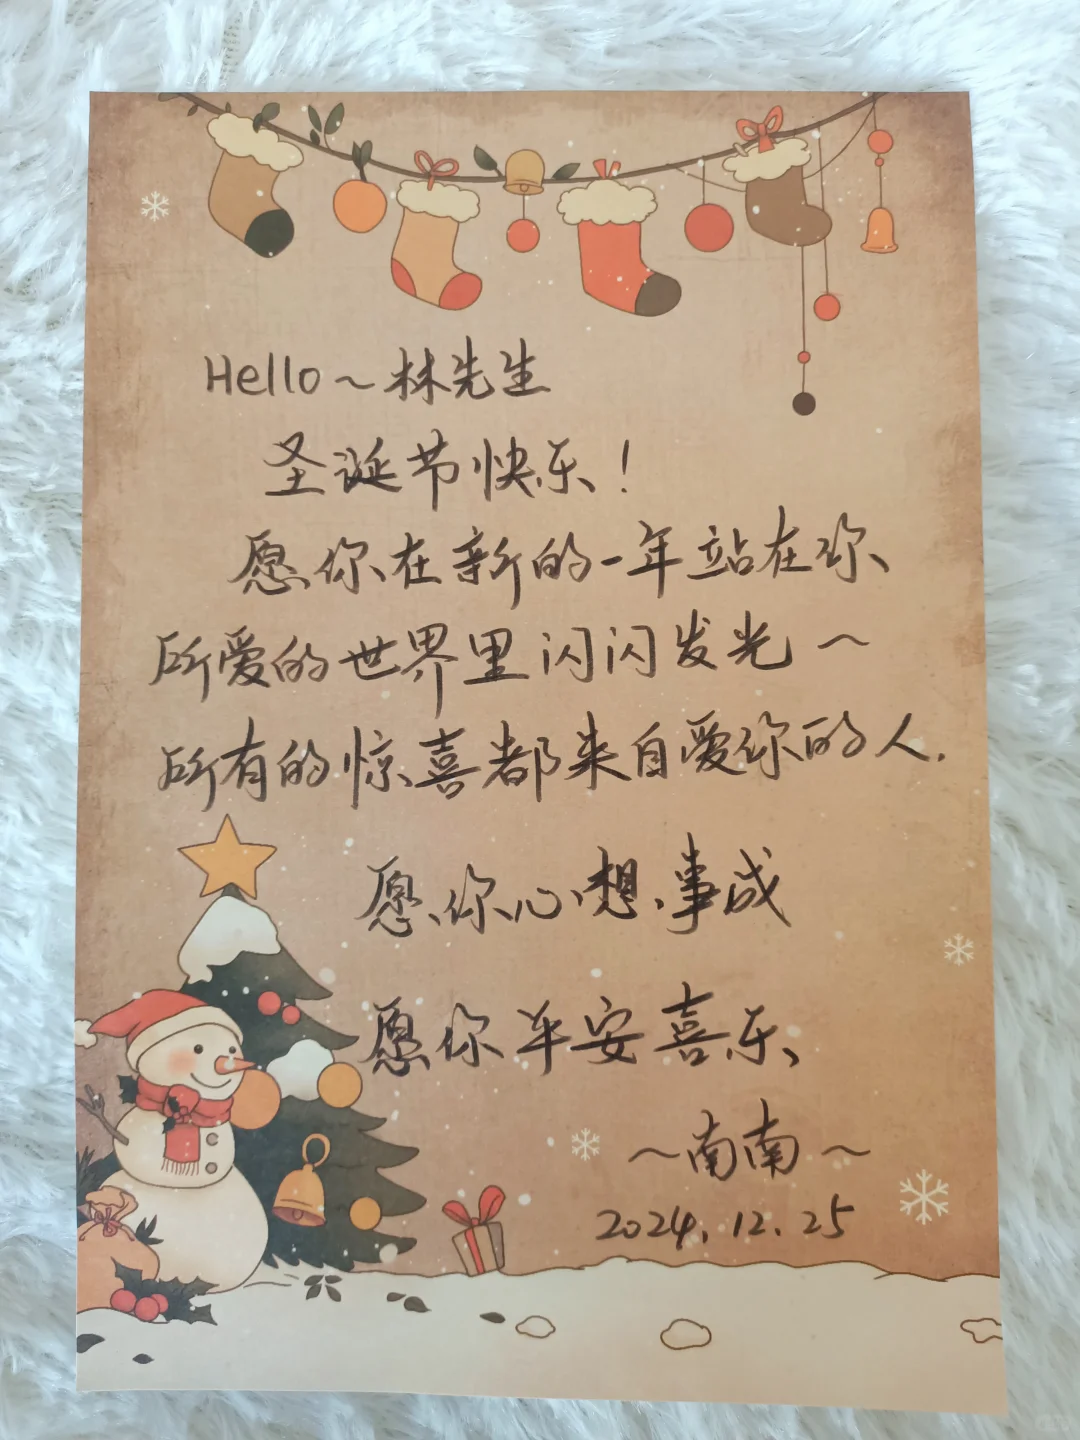 Hello～林先生
圣诞节快乐！
愿你在新的一年站在你
所爱的世界里闪闪发光～
所有的惊喜都来自爱你的人.
愿你心想事成
愿你平安喜乐
～南南～
2024.12.25